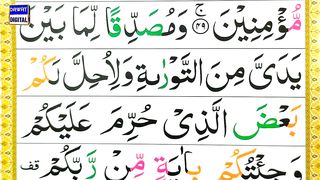 DAWAT
DIGITAL
مُّؤۡمِنِيۡنَ ۚ‏ ﴿۴۹﴾ وَمُصَدِّقًا لِّمَا بَيۡنَ
يَدَىَّ مِنَ التَّوۡرٰٮةِ وَلِاُحِلَّ لَـكُمۡ
بَعۡضَ الَّذِىۡ حُرِّمَ عَلَيۡكُمۡ
وَجِئۡتُكُمۡ بِاٰيَةٍ مِّنۡ رَّبِّكُمۡ قف